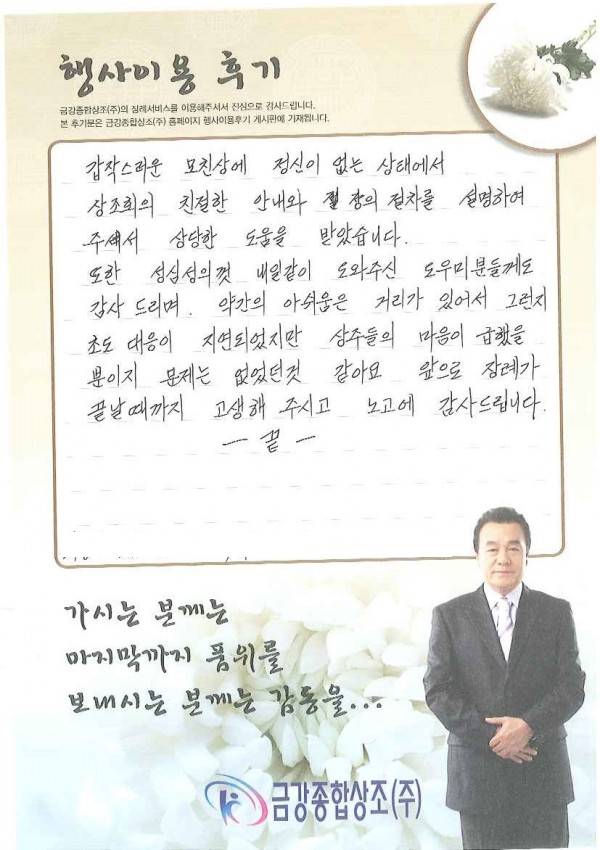 행사이용 후기
금강종합상조(주)의 장례서비스를 이용해주셔서 진심으로 감사드립니다.
본 후기문은 금강종합상조(주) 홈페이지 행사이용후기 게시판에 기재됩니다.
갑작스러운 모친상에 정신이 없는 상태에서
상조회의 친절한 안내와 장의 절차를 설명하여
주셔서 상당한 도움을 받았습니다.
또한 성심성의껏 내일같이 도와주신 도우미분들께도
감사 드리며. 약간의 아쉬움은 거리가 있어서 그런지
초도 대응이 지연되었지만 상주들의 마음이 급했을
뿐이지 문제는 없었던것 같아요 앞으로 장례가
끝날때까지 고생해 주시고 노고에 감사드립니다.
— 끝 —
가시는 분께는
마지막까지 품위를
보내시는 분께는 감동을...
금강종합상조(주)